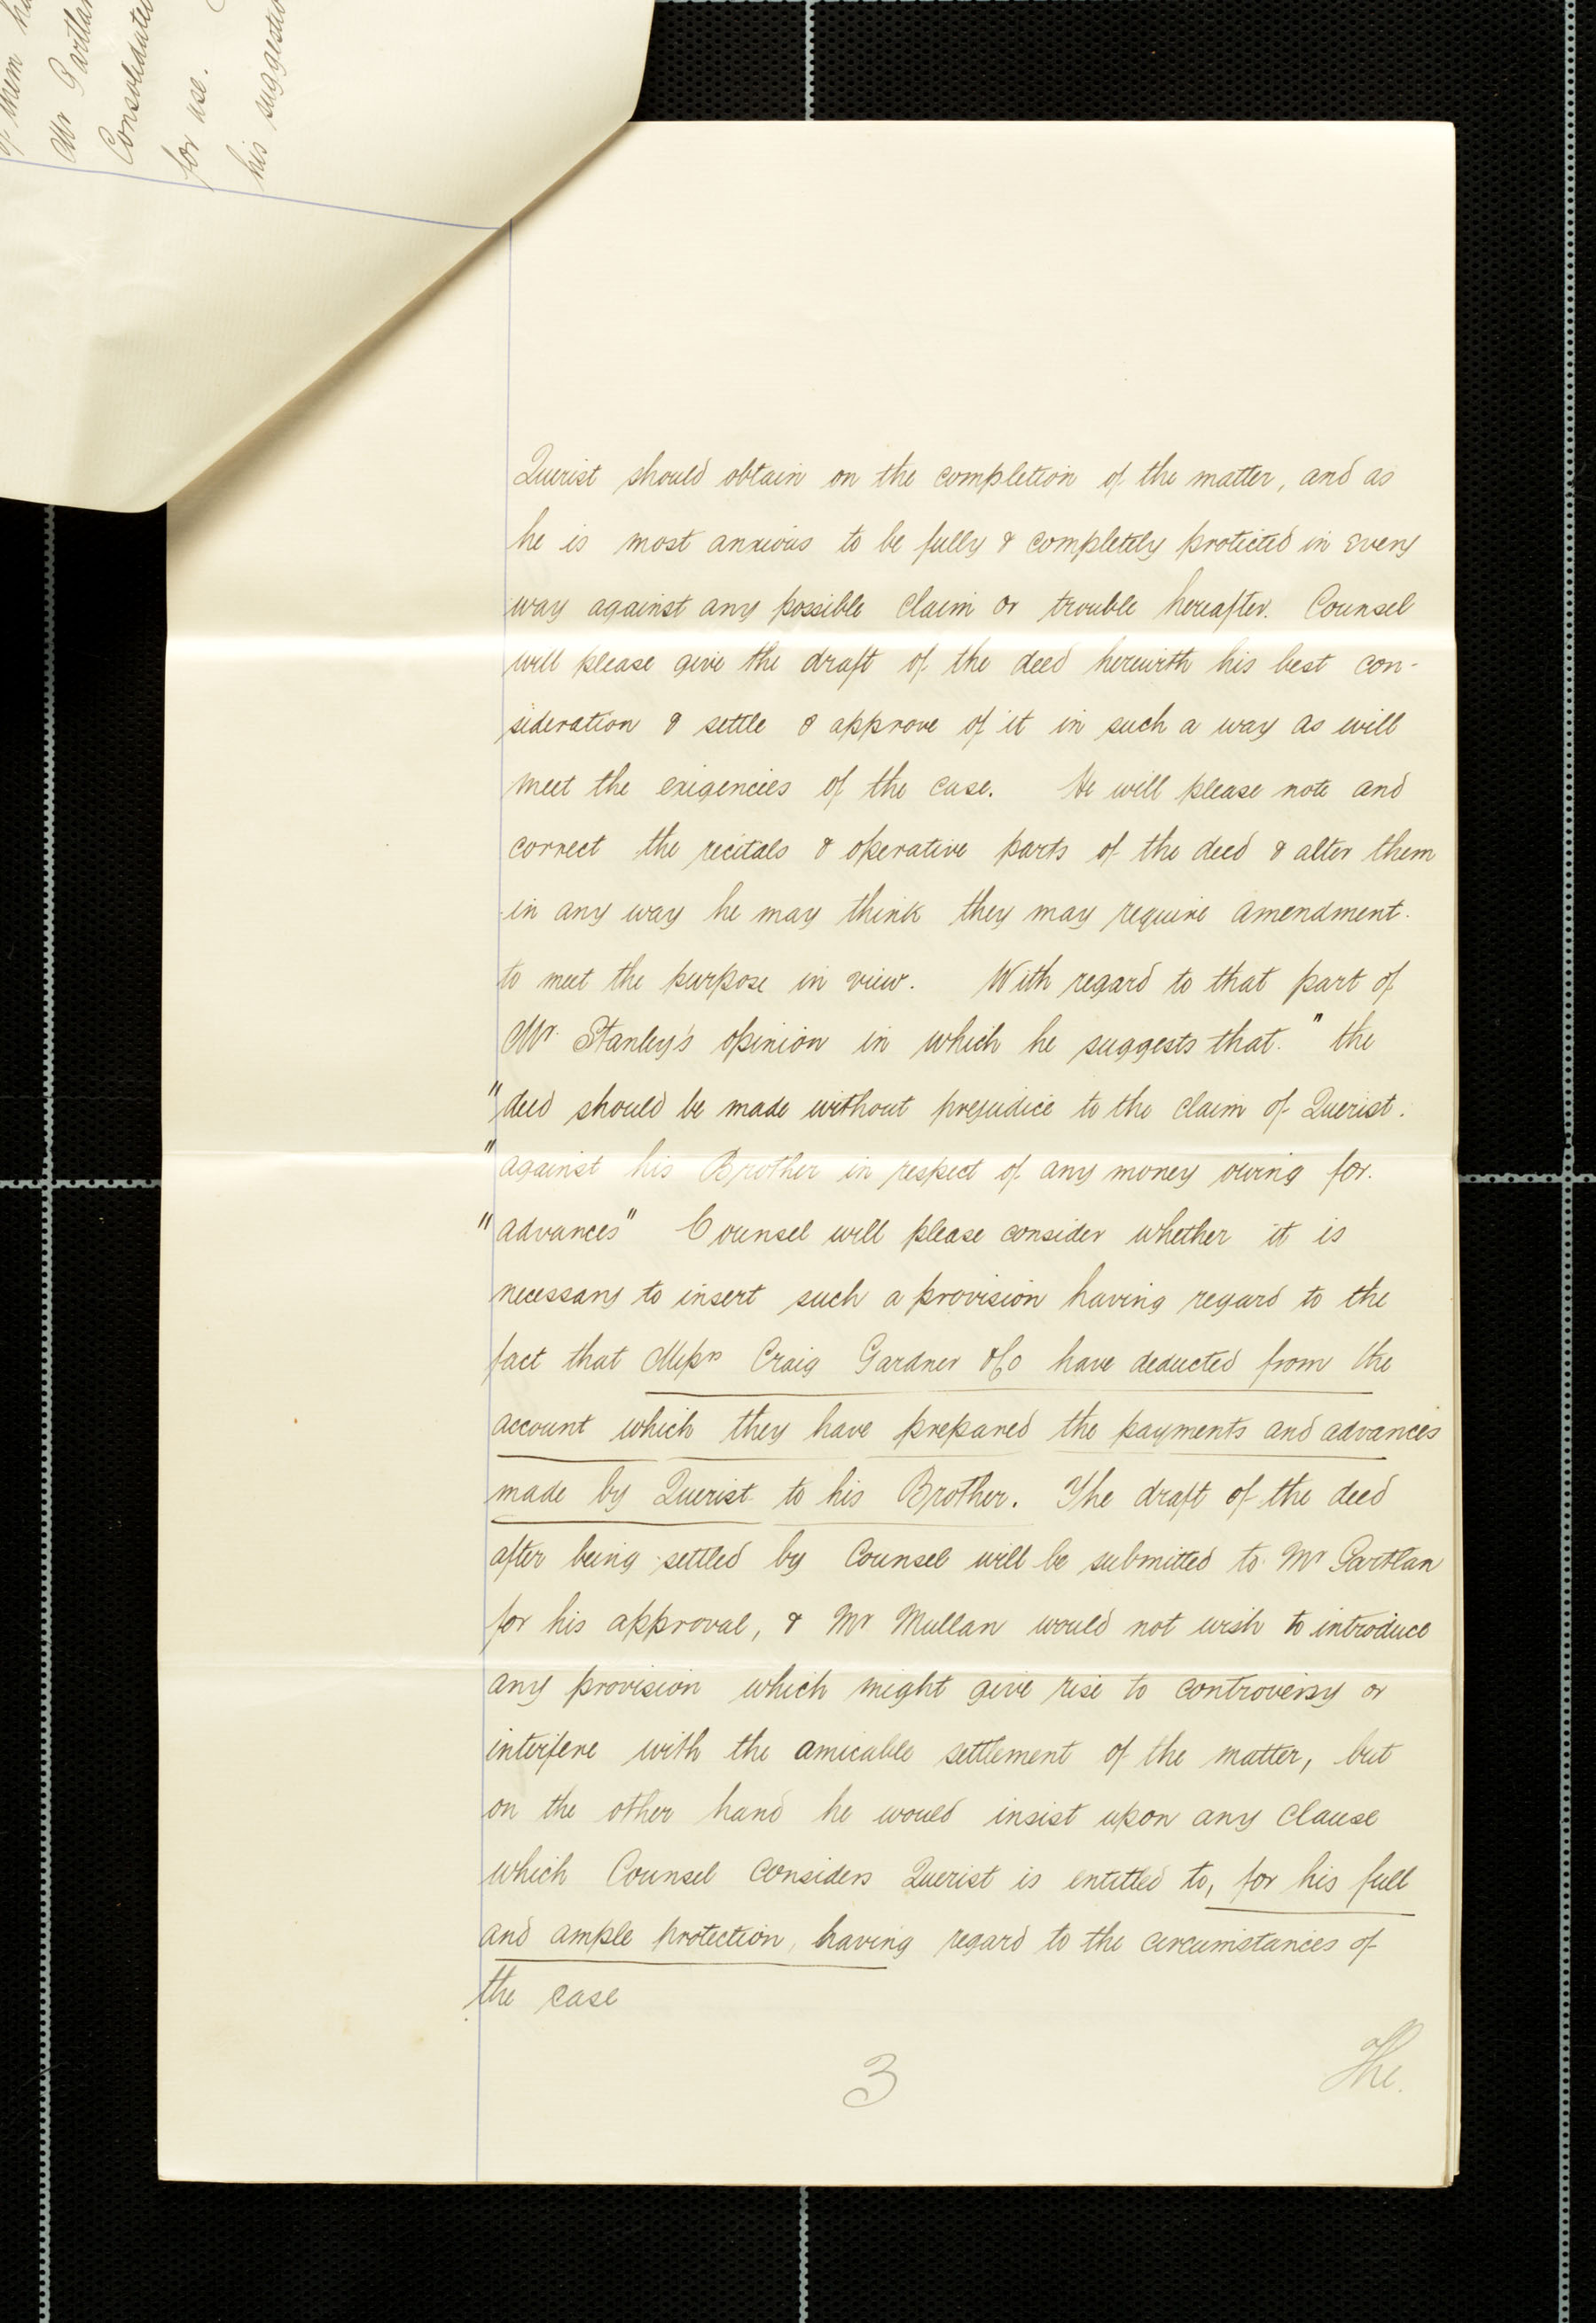 of them
Mr Gartlan
Consolidated
for use.
his suggestio
Querist should obtain on the completion of the matter, and as
he is most anxious to be fully & completely protected in every
way against any possible claim or trouble hereafter. Counsel
will please give the draft of the deed herewith his best con-
sideration & settle & approve of it in such a way as will
meet the exigencies of the case. He will please note and
correct the recitals & operative parts of the deed & alter them
in any way he may think they may require amendment.
to meet the purpose in view. With regard to that part of
Mr. Stanley's opinion in which he suggests that. "the
"deed should be made without prejudice to the claim of Querist.
"against his Brother in respect of any money owing for.
"advances" Counsel will please consider whether it is
necessary to insert such a provision having regard to the
fact that Messrs Craig Gardner & Co have deducted from the
account which they have prepared the payments and advances
made by Querist to his Brother. The draft of the deed
after being settled by Counsel will be submitted to Mr Gartlan
for his approval, & Mr Mullan would not wish to introduce
any provision which might give rise to controversy or
interfere with the amicable settlement of the matter, but
on the other hand he would insist upon any clause
which Counsel considers Querist is entitled to, for his full
and ample protection, having regard to the circumstances of
the case
3
The.